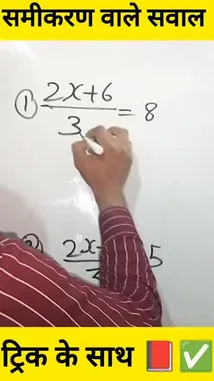 समीकरण वाले सवाल
① (2x+6)/3 = 8
2x
5
ट्रिक के साथ